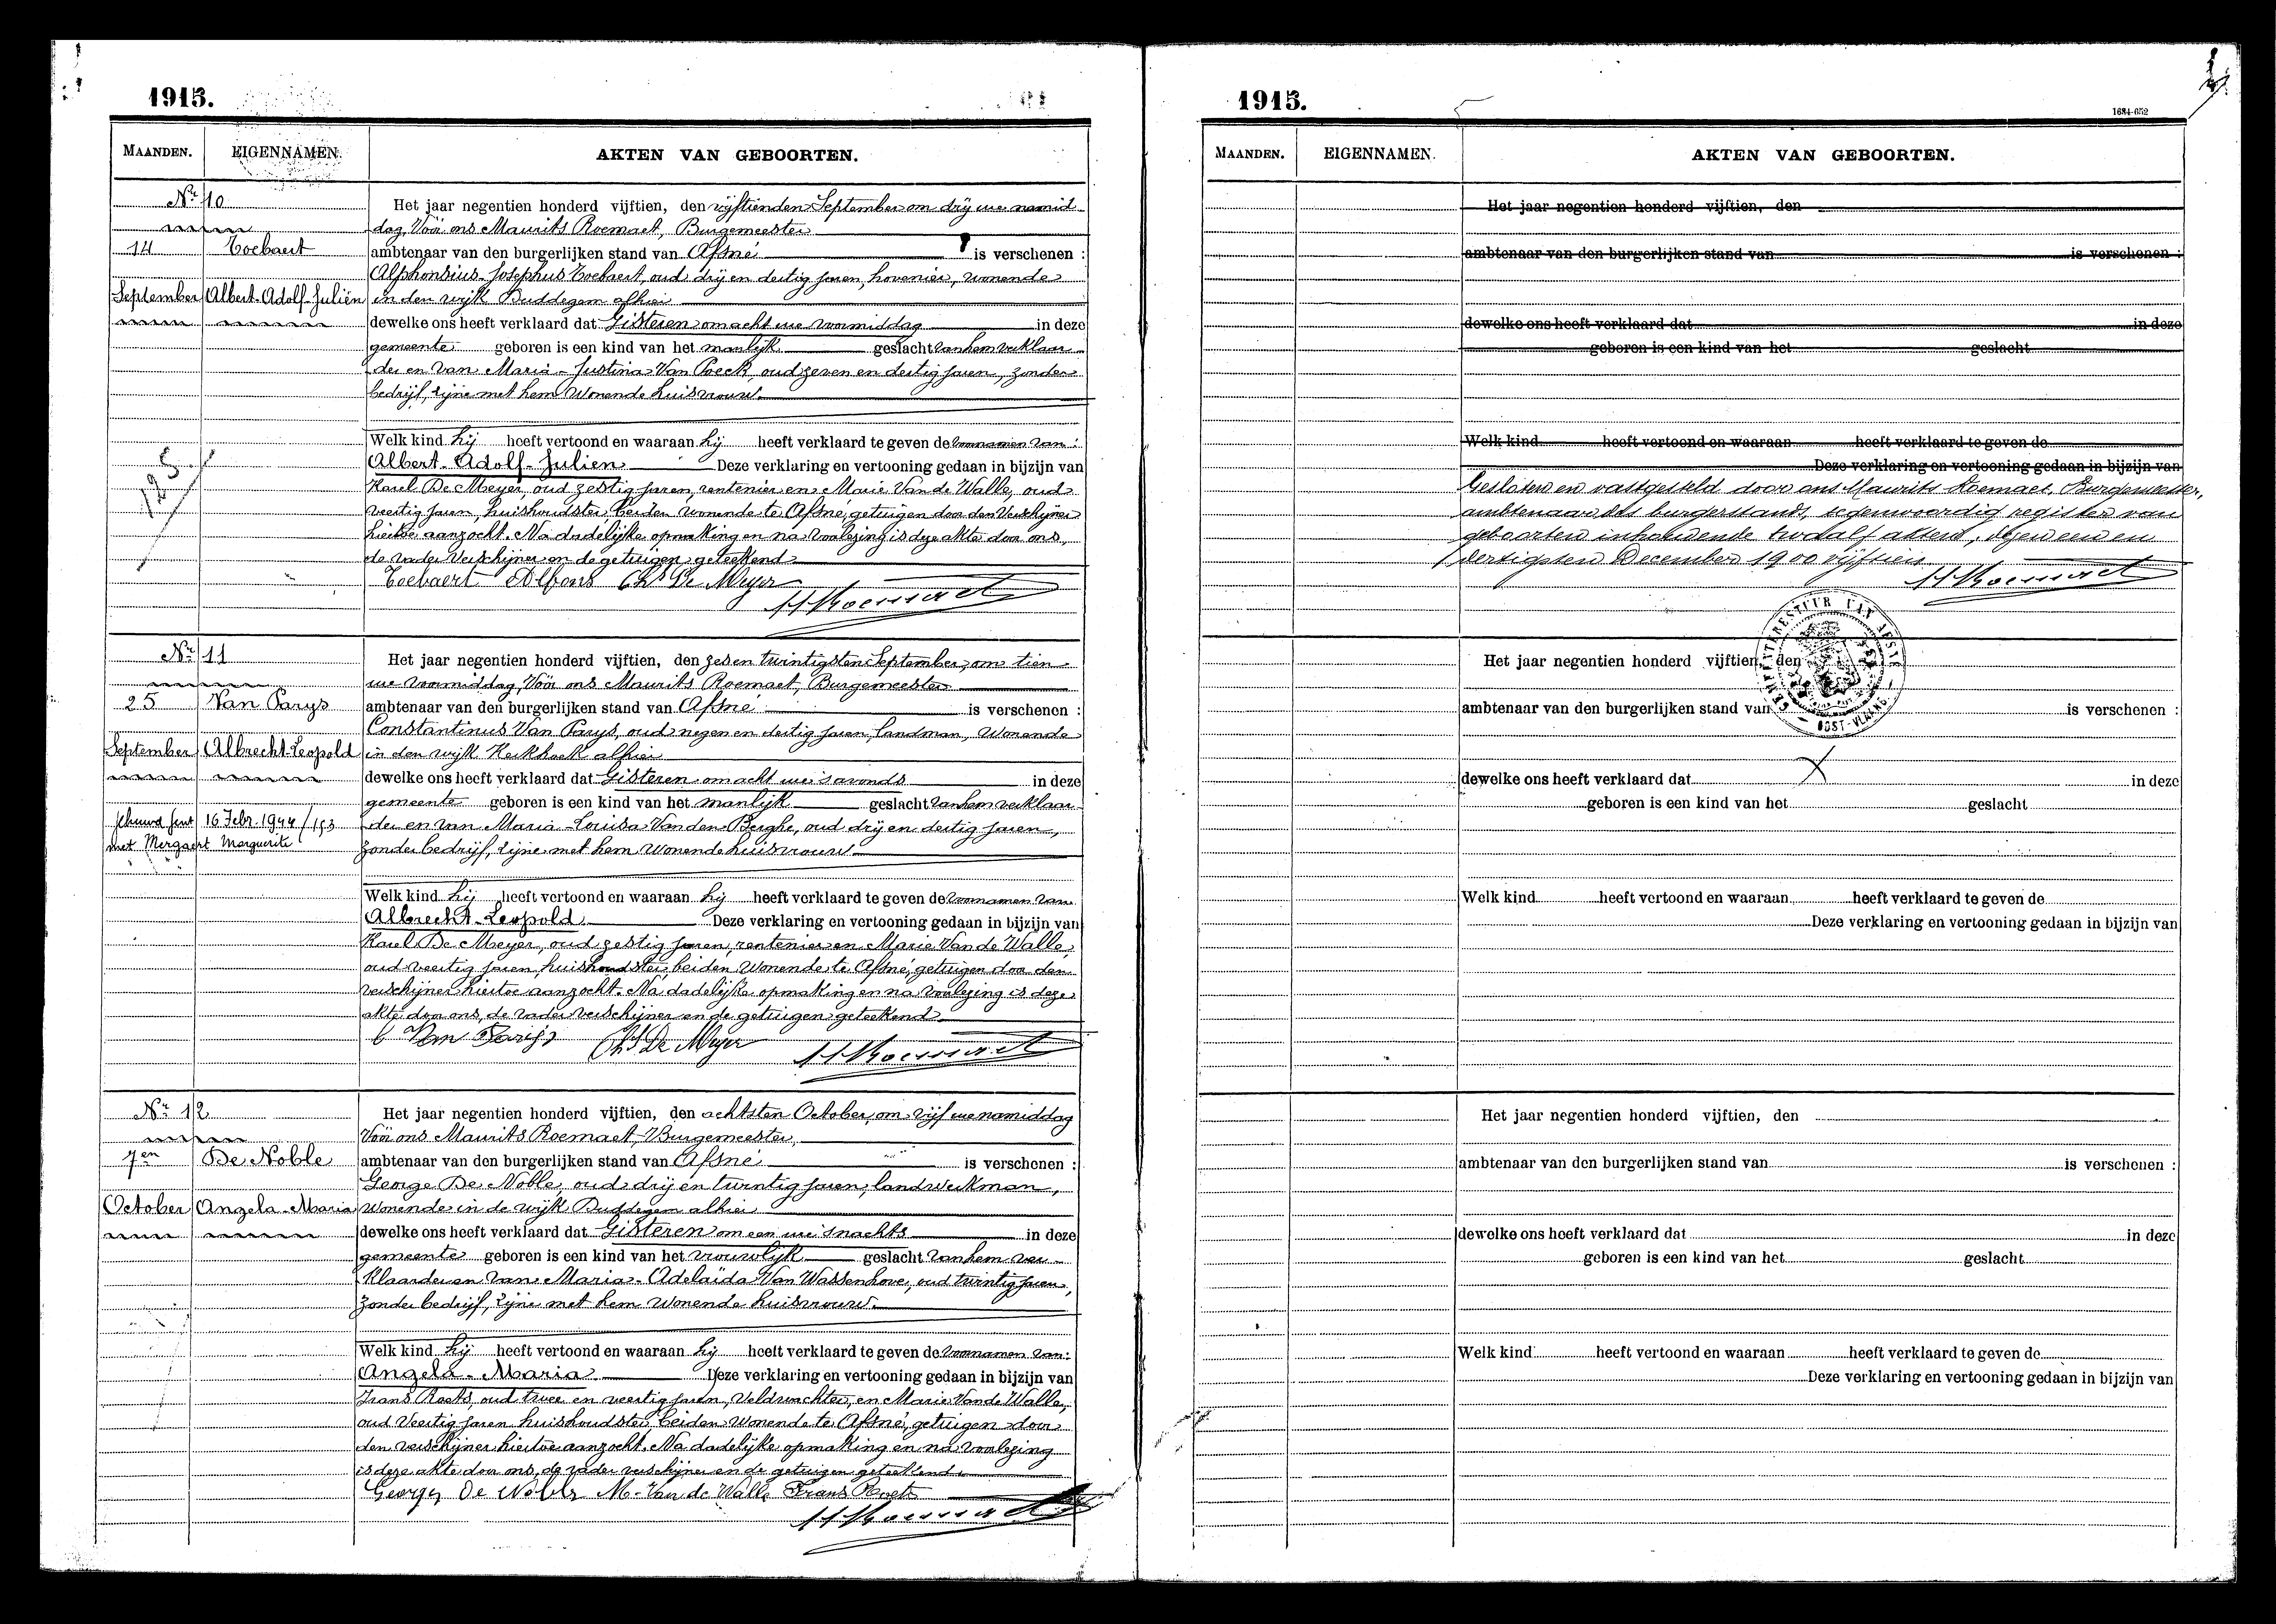 1915.
MAANDEN. EIGENNAMEN. AKTEN VAN GEBOORTEN.
Nr 10
14 Toebaert
September Albert-Adolf-Juliën
Het jaar negentien honderd vijftien, den vijftienden September om drij ure namid
dag, Vóór ons Maurits Roemaet, Burgemeester
ambtenaar van den burgerlijken stand van Afsné is verschenen :
Alphonsius-Josephus Toebaert, oud drij en dertig jaren, hovenier, wonende
in den wijk Buddegem alhier
dewelke ons heeft verklaard dat Gisteren om acht ure voormiddag in deze
gemeente geboren is een kind van het manlijk geslacht van hem verklaar
der en van Maria-Justina Van Poeck, oud zeven en dertig jaren, zonder
bedrijf, zijne met hem wonende huisvrouw.
Welk kind hij heeft vertoond en waaraan hij heeft verklaard te geven de voornamen van :
Albert-Adolf-Julien Deze verklaring en vertooning gedaan in bijzijn van
Karel De Meyer, oud zestig jaren, rentenier en Marie Van de Walle, oud
veertig jaren, huishoudster beiden wonende te Afsné, getuigen door den Verschijner
hiertoe aanzocht. Na dadelijke opmaking en na voorlezing is deze akte door ons,
de vader verschijner en de getuigen geteekend
Toebaert Alfons Chs De Meyer
M Roemaet
Nr 11
25 Van Parys
September Albrecht-Leopold
gehuwd Gent 16 Febr. 1944 / 193
met Mergaert Marguerite
Het jaar negentien honderd vijftien, den zes en twintigsten September, om tien
ure voormiddag, Vóór ons Maurits Roemaet, Burgemeester
ambtenaar van den burgerlijken stand van Afsné is verschenen :
Constantinus Van Parys, oud negen en dertig jaren, landman, Wonende
in den wijk Kerkhoek alhier
dewelke ons heeft verklaard dat Gisteren om acht ure 's avonds in deze
gemeente geboren is een kind van het manlijk geslacht van hem verklaar
der en van Maria-Louisa Van den Berghe, oud drij en dertig jaren,
zonder bedrijf, zijne met hem Wonende huisvrouw
Welk kind hij heeft vertoond en waaraan hij heeft verklaard te geven de voornamen van
Albrecht-Leopold Deze verklaring en vertooning gedaan in bijzijn van
Karel De Meyer, oud zestig jaren, rentenier en Marie Van de Walle,
oud veertig jaren, huishoudster, beiden Wonende te Afsné, getuigen door den
verschijner hiertoe aanzocht. Na dadelijke opmaking en na voorlezing is deze
akte door ons, de vader verschijner en de getuigen geteekend
C Van Parijs Chs De Meyer M Roemaet
Nr 12
7en De Noble
October Angela-Maria
Het jaar negentien honderd vijftien, den achtsten October, om vijf ure namiddag
Vóór ons Maurits Roemaet, Burgemeester,
ambtenaar van den burgerlijken stand van Afsné. is verschenen :
George De Noble, oud drij en twintig jaren, landwerkman,
Wonende in de wijk Buddegem alhier
dewelke ons heeft verklaard dat Gisteren om een ure 's nachts in deze
gemeente geboren is een kind van het vrouwlijk geslacht van hem ver-
klaarder en van Maria-Adelaïda Van Wassenhove, oud twintig jaren,
zonder bedrijf, zijne met hem Wonende huisvrouw.
Welk kind hij heeft vertoond en waaraan hij heeft verklaard te geven de voornamen van:
Angela-Maria Deze verklaring en vertooning gedaan in bijzijn van
Frans Roets, oud twee en veertig jaren, Veldwachter, en Marie Van de Walle,
oud Veertig jaren huishoudster, beiden wonende te Afsné, getuigen door
den verschijner hiertoe aanzocht. Na dadelijke opmaking en na voorlezing
is deze akte door ons, de vader verschijner en de getuigen geteekend.
Georges De Noble M. Van de Walle Frans Roets
M Roemaet
1915.
1684-652
MAANDEN. EIGENNAMEN. AKTEN VAN GEBOORTEN.
Het jaar negentien honderd vijftien, den
ambtenaar van den burgerlijken stand van is verschenen :
dewelke ons heeft verklaard dat in deze
geboren is een kind van het geslacht
Welk kind heeft vertoond en waaraan heeft verklaard te geven de
Deze verklaring en vertooning gedaan in bijzijn van
Gesloten en vastgesteld door ons Maurits Roemaet, Burgemeester,
ambtenaar des burgerstands, tegenwoordig register van
geboorten inhoudende twaalf akten, dezen een en
dertigsten December 1900 vijftien
M Roemaet
Het jaar negentien honderd vijftien, den
ambtenaar van den burgerlijken stand van is verschenen :
dewelke ons heeft verklaard dat in deze
geboren is een kind van het geslacht
Welk kind heeft vertoond en waaraan heeft verklaard te geven de
Deze verklaring en vertooning gedaan in bijzijn van
Het jaar negentien honderd vijftien, den
ambtenaar van den burgerlijken stand van is verschenen :
dewelke ons heeft verklaard dat in deze
geboren is een kind van het geslacht
Welk kind heeft vertoond en waaraan heeft verklaard te geven de
Deze verklaring en vertooning gedaan in bijzijn van